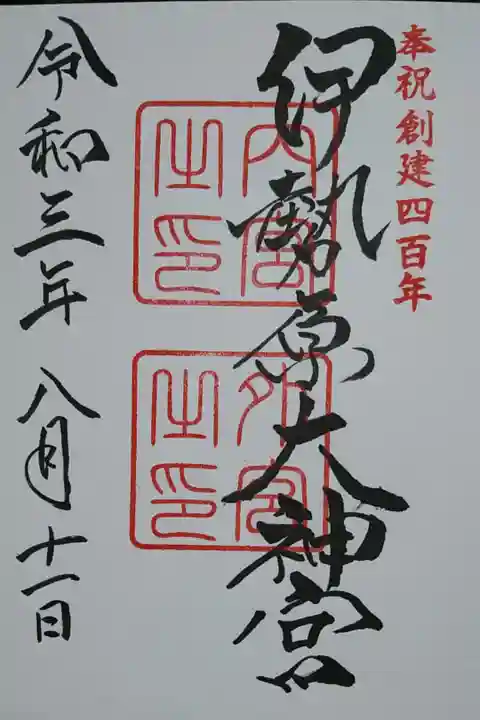 奉祝創建四百年
伊勢原大神宮
内宮之印
外宮之印
令和三年 八月十一日